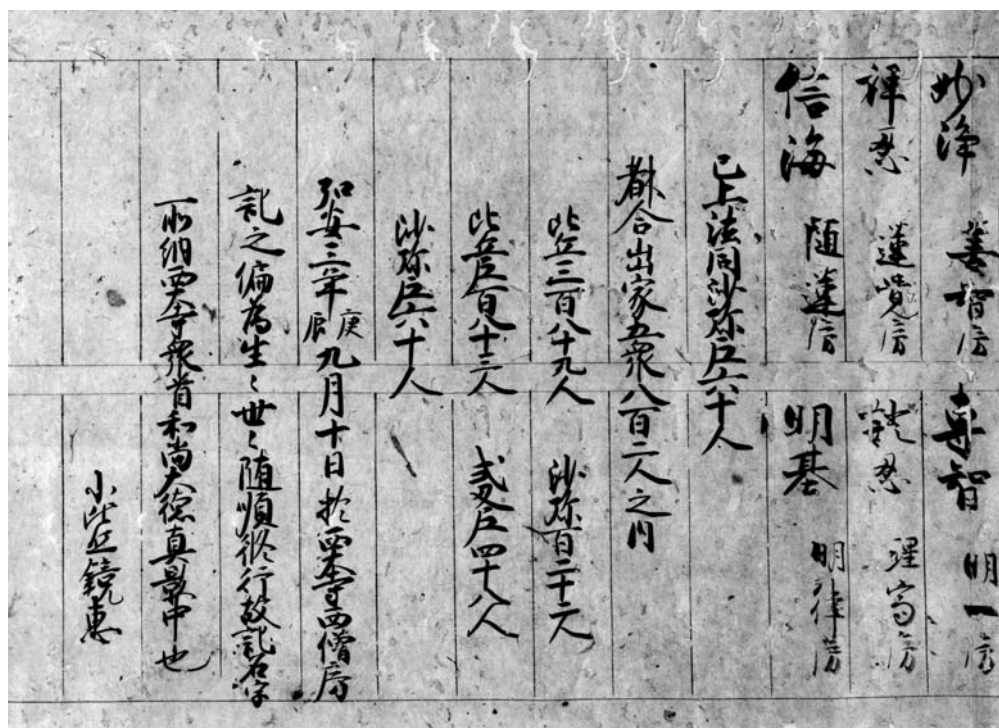 妙浄 善智房 専智 明一房
禅忍 蓮覚房 観忍 理高房
信海 随蓮房 明基 明律房
已上法同沙弥尼六十人
都合出家五衆八百二人之内
比丘三百八十九人 沙弥百二十二人
比丘尼百八十三人 式叉尼四十八人
沙弥尼六十人
弘安三年庚辰九月十日於西大寺西僧房
記之偏為生々世々随順修行故記名字
所納西大寺衆首和尚大徳真影中也
小比丘鏡恵